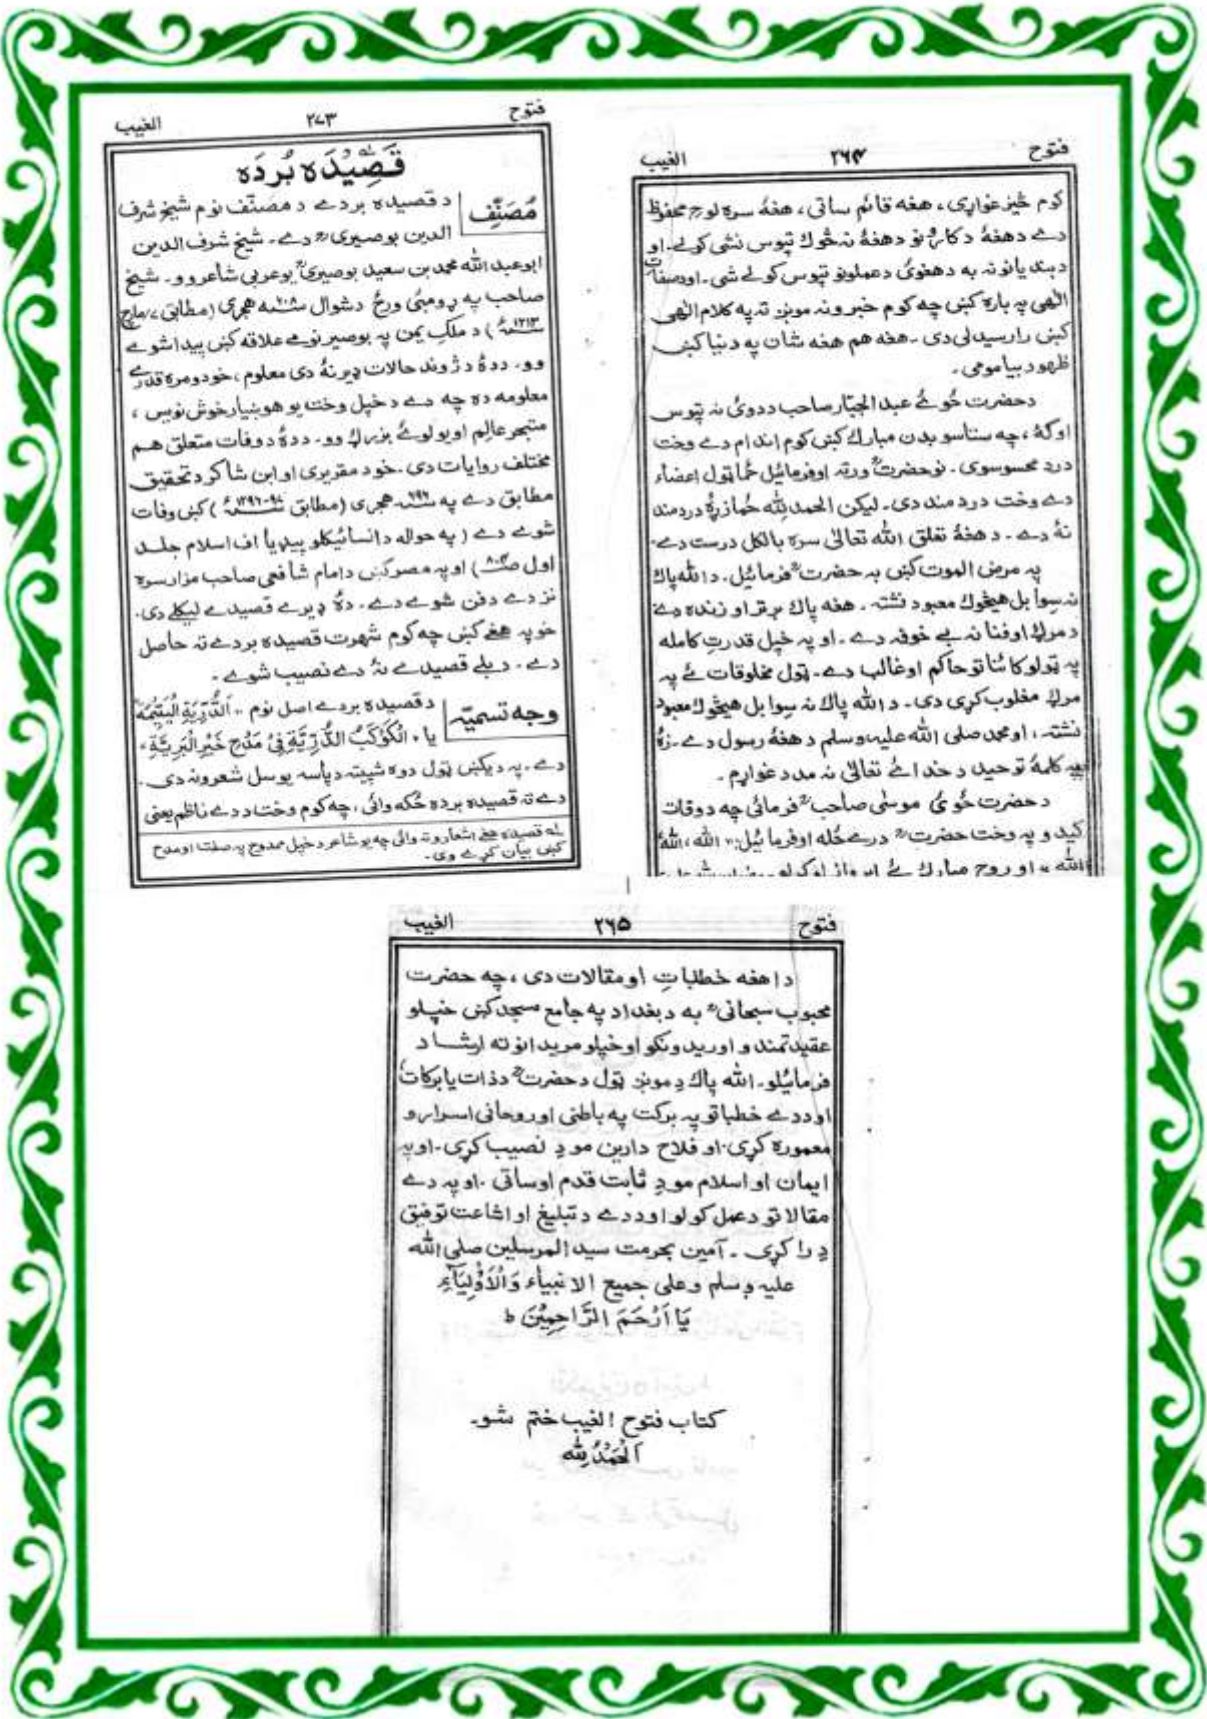 فتوح ۲۶۴ الغیب
کوم څیز غواړی، هغه قائم ساتی، هغهٔ سره لوح محفوظ
دے دهغهٔ دکارونو دهغهٔ نه څوك تپوس نشی کولے۔ او
دبندیانو نه به دهغویٔ دعملونو تپوس کولے شی۔ اودصفات
الٰهی په باره کښ چه کوم خبرونه مونږ ته په کلام الٰهی
کښ رارسیدلی دی۔ هغه هم هغه شان په دنیا کښ
ظهور بیا مومی۔
دحضرت خُوئے عبد الجبّار صاحب ددویٔ نه تپوس
اوکهٔ، چه ستاسو بدن مبارك کښ کوم اندام دے وخت
درد محسوسوی۔ نو حضرتؒ ورته اوفرمائیل خُما ټول اعضاء
دے وخت درد مند دی۔ لیکن الحمد لِلّٰه خُما زړهٔ درد مند
نهٔ دے۔ دهغهٔ تعلق الله تعالیٰ سره بالکل درست دے۔
په مرض الموت کښ به حضرتؒ فرمائیل۔ دالله پاك
نه سِوا بل هیڅوك معبود نشته۔ هغه پاك برتر او زنده دے
دمرگ اوفنا نه بے خوفه دے۔ او په خپل قدرتِ کامله
په ټولو کائناتو حاکم اوغالب دے۔ ټول مخلوقات ئے په
مرگ مغلوب کړی دی۔ دالله پاك نه سِوا بل هیڅوك معبود
نشته، اومحمد صلی الله علیه وسلم دهغهٔ رسول دے۔ زهٔ
په کلمهٔ توحید دخدائے تعالیٰ نه مدد غواړم۔
دحضرت خُویٔ موسٰی صاحبؒ فرمائی چه دوفات
کیدو په وخت حضرتؒ درے ځله اوفرمائیل: "الله، اللهُ
الله" او روح مبارك ئے
فتوح ۲۷۳ الغیب
قَصِیْدَه بُردَه
مُصَنِّف دقصیده بردے دمصنّف نوم شیخ شرف
الدین بوصیریؒ دے۔ شیخ شرف الدین
ابوعبد الله محمد بن سعید بوصیریؒ یوعربی شاعر وو۔ شیخ
صاحب په ړومبیٔ ورځ دشوال ۶۰۸ هجری (مطابق ۷ مارچ
۱۲۱۳ء) دملكِ یمن په بوصیر نومے علاقه کښ پیدا شوے
وو۔ ددهٔ دژوند حالات ډیر نهٔ دی معلوم، خو دومره قدرے
معلومه ده چه دے دخپل وخت یو هوښیار خوش نویس،
متبحر عالِم او یو لوئے بزرگ وو۔ ددهٔ دوفات متعلق هم
مختلف روایات دی۔ خو دمقریزی او ابن شاکر دتحقیق
مطابق دے په هجری (مطابق ) کښ وفات
شوے دے (په حواله دانسائیکلوپیډیا آف اسلام جلد
اول ) او په مصر کښ دامام شافعی صاحب مزار سره
نزدے دفن شوے دے۔ دهٔ ډیرے قصیدے لیکلے دی۔
خو په هغے کښ چه کوم شهرت قصیده بردے ته حاصل
دے۔ دبلے قصیدے نهٔ دے نصیب شوے۔
وجه تسمیّه دقصیده بردے اصل نوم "اَلدُّرِّیَةِ الْیَتِیْمَةِ"
یا "اَلْکَوْکَبُ الدُّرِّیَّةِ فِیْ مَدْحِ خَیْرِ الْبَرِیَّةِ"
دے۔ په دیکښ ټول دوه شپیته دپاسه یو سل شعرونه دی۔
دے ته قصیده برده ځکه وائی، چه کوم وخت ددے ناظم یعنی
له قصیده هغے اشعارو ته وائی چه یو شاعر دخپل ممدوح په صفت اومدح
کښ بیان کړے وی۔
فتوح ۲۶۵ الغیب
داهغه خطباتِ اومقالات دی، چه حضرت
محبوب سبحانیؒ به دبغداد په جامع مسجد کښ خپلو
عقیدتمندو اوریدونکو اوخپلو مریدانو ته ارشاد
فرمائیلو۔ الله پاك دِ مونږ ټول دحضرتؒ دذات بابرکات
اوددے خطباتو په برکت په باطنی اوروحانی اسرارو
معموره کړی۔ او فلاح دارین مودِ نصیب کړی۔ اوپه
ایمان او اسلام مودِ ثابت قدم اوساتی۔ اوپه دے
مقالاتو دعمل کولو اوددے دتبلیغ او اشاعت توفیق
دِ راکړی۔ آمین بحرمت سید المرسلین صلی الله
علیه وسلم وعلی جمیع الانبیاء وَالْاَوْلِیَآءِ
یَا اَرْحَمَ الرَّاحِمِیْنَ ط
کتاب فتوح الغیب ختم شو۔
اَلْحَمْدُ لِلّٰه